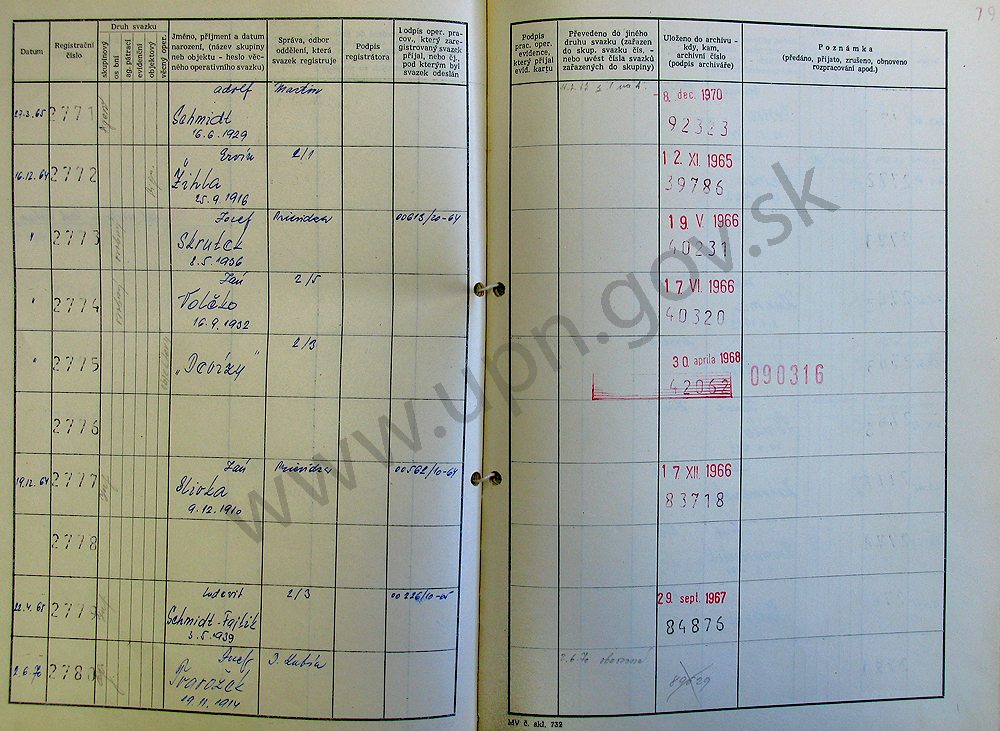 79
Datum
Registrační
číslo
Druh svazku
skupinový
osobní
ag. pátrací
evidenční
objektový
věcný oper.
Jméno, příjmení a datum
narození, (název skupiny
neb objektu - heslo věc-
ného operativního svazku)
Správa, odbor
oddělení, která
svazek registruje
Podpis
registrátora
Podpis oper. pra-
cov., který zare-
gistrovaný svazek
přijal, nebo čj.,
pod kterým byl
svazek odeslán
Podpis
prac. oper.
evidence,
který přijal
evid. kartu
Převedeno do jiného
druhu svazku (zařazen
do skup. svazku čís. -
nebo uvést čísla svazků
zařazených do skupiny)
Uloženo do archivu -
kdy, kam,
archivní číslo
(podpis archiváře)
Poznámka
(předáno, přijato, zrušeno, obnoveno
rozpracování apod.)
2771
Adolf
Martin
Schmidt
16.6.1929
- 8. dec. 1970
92323
16.12.64
2772
Ervín
2/1
Žihla
25.9.1916
12. XI. 1965
39786
"
2773
Jozef
Prievidza
00613/20-64
Skrutek
8.5.1936
19. V. 1966
40231
"
2774
Ján
2/5
16.9.1932
17. VI. 1966
40320
"
2775
2/3
30. apríla 1968
42062
090316
2776
19.12.64
2777
Ján
Prievidza
00562/10-64
Slivka
9.12.1910
17. XII. 1966
83718
2778
22.4.65
2779
Ludevít
2/3
00226/10-65
Schmidt-Fajlík
3.5.1939
29. sept. 1967
84876
2.6.70
2780
Jozef
D. Kubín
19.11.1914
2.6.70
MV č. skl. 732
www.upn.gov.sk